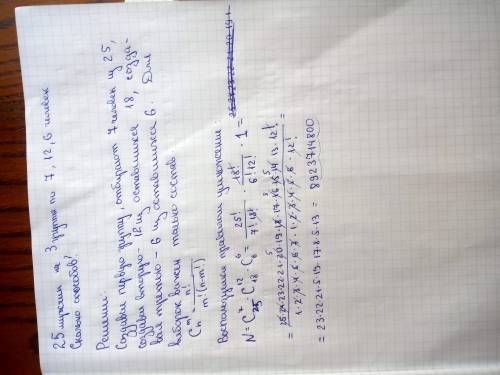 25 мужчин на 3 группы по 7, 12, 6 человек
Сколько способов?
Решение:
Создавая первую группу, отбирают 7 человек из 25,
создавая вторую - 12 из оставшихся 18, созда-
вая третью - 6 из оставшихся 6. Для
выборок важен только состав.
C_n^m = n! / m!(n-m)!
Воспользуемся правилом умножения:
N = C_25^7 · C_18^12 · C_6^6 = 25! / 7! 18! · 18! / 6! 12! · 1 =
= 25·24·23·22·21·20·19·18·17·16·15·14·13·12! / 1·2·3·4·5·6·7·1·2·3·4·5·6·12! =
= 23·22·21·5·19·17·8·5·13 = 8923714800